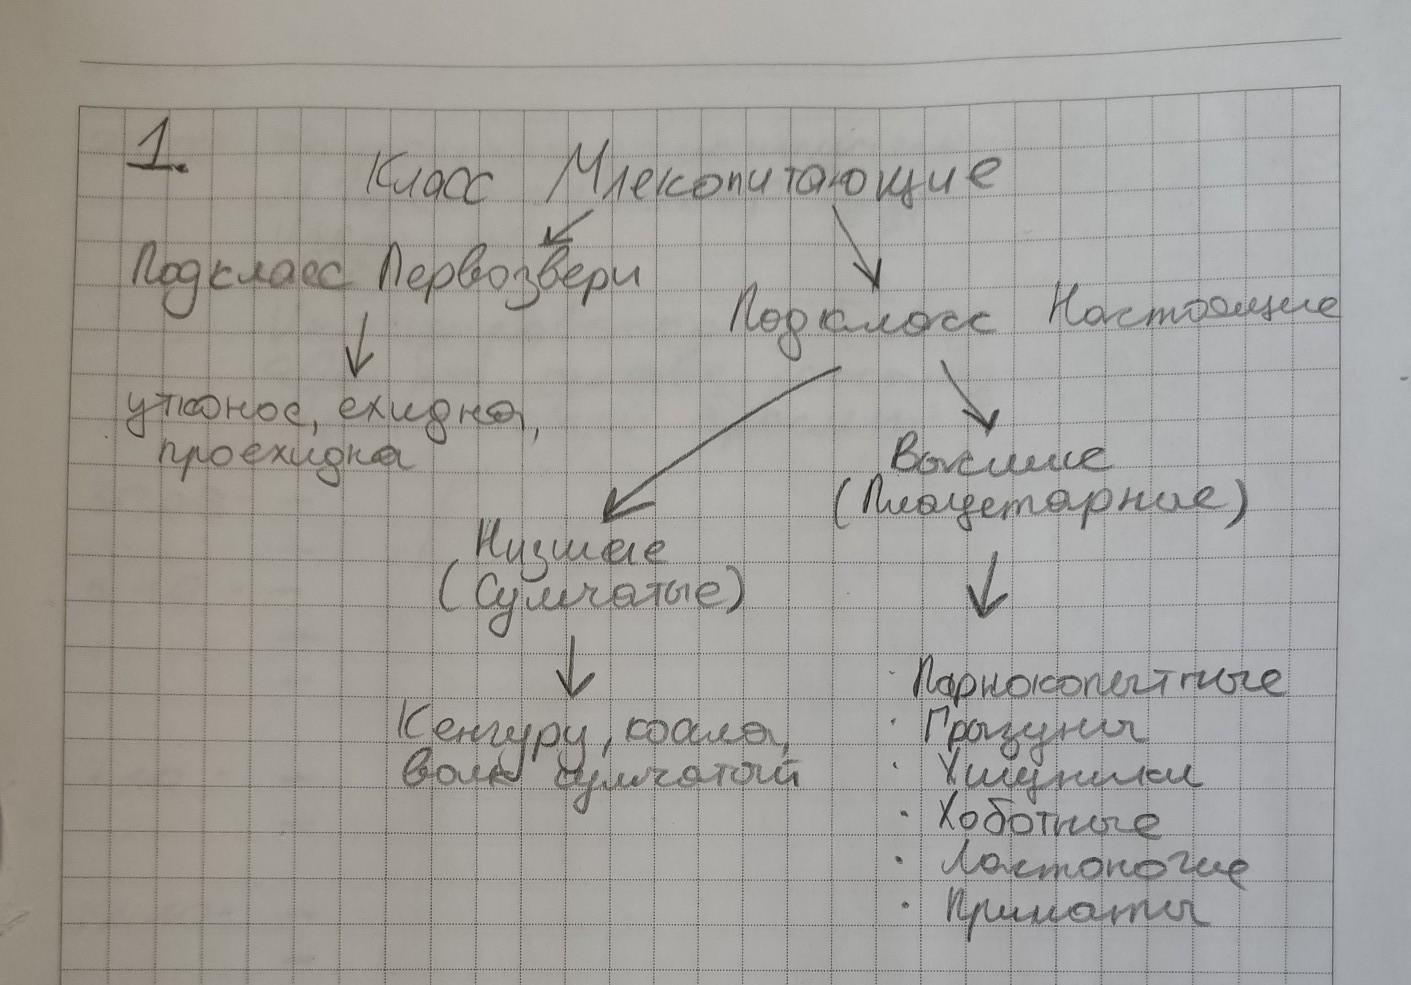 1.
Класс Млекопитающие
Подкласс Первозвери
Подкласс Настоящие
утконос, ехидна,
проехидна
Высшие
(Плацетарные)
Низшие
(Сумчатые)
Кенгуру, коала,
волк сумчатый
· Парнокопытные
· Грызуны
· Хищники
· Хоботные
· Ластоногие
· Приматы